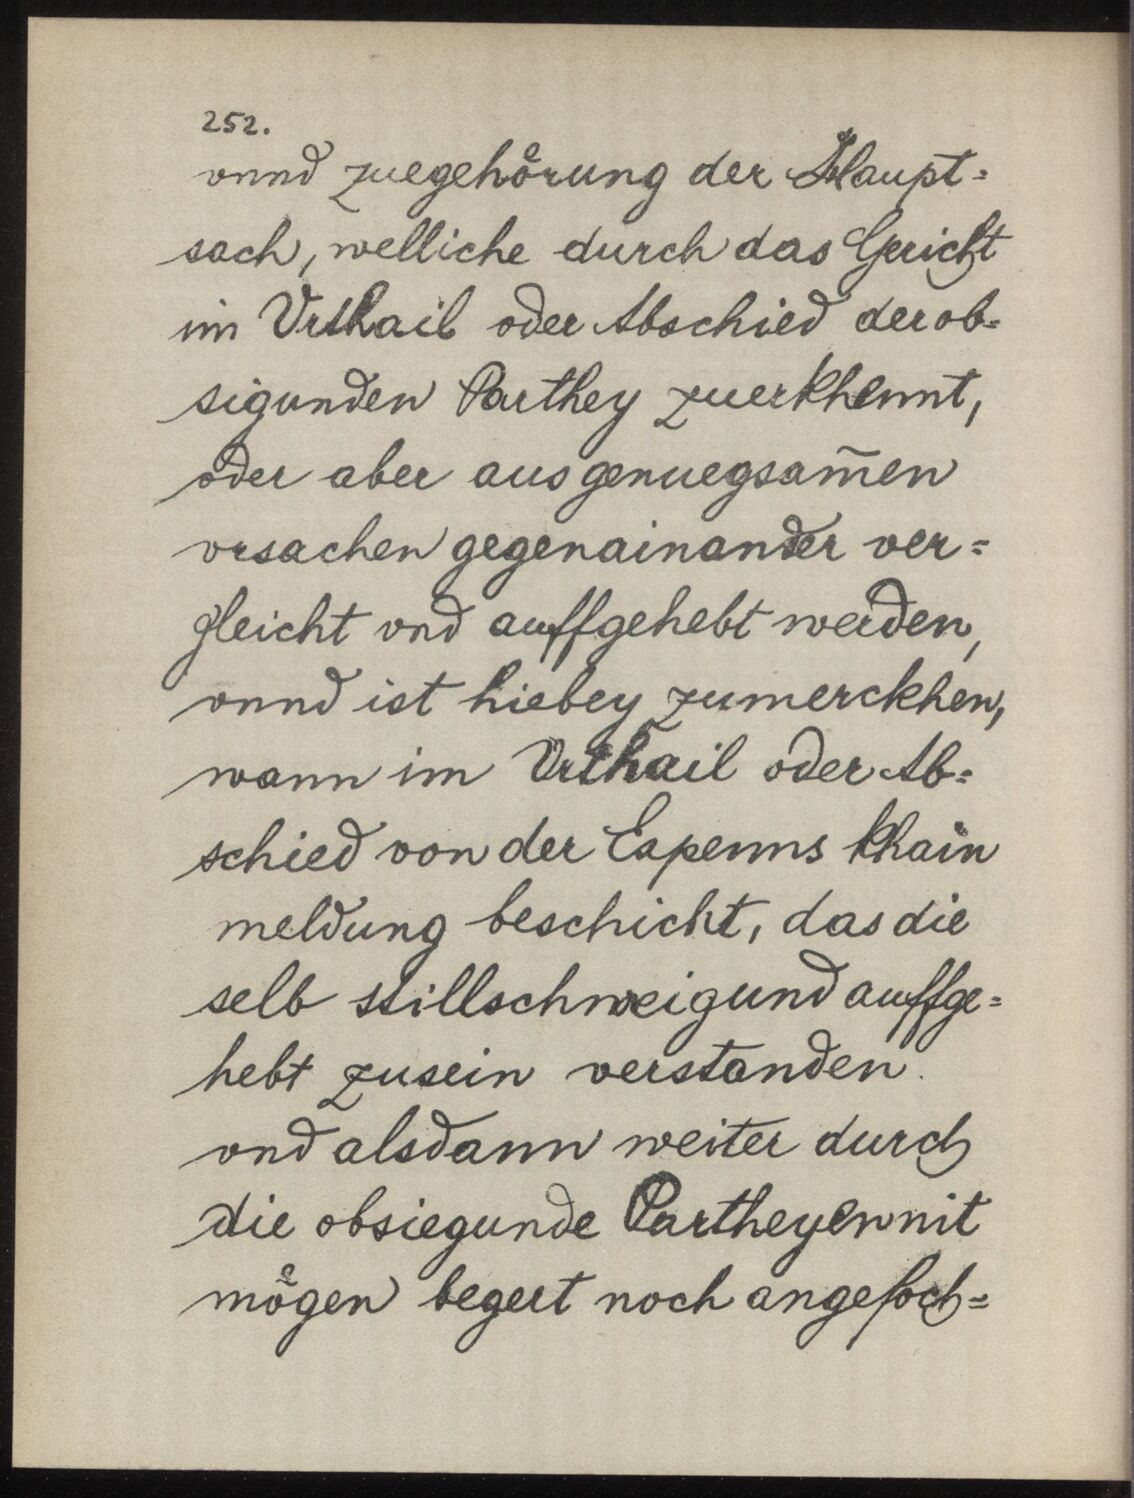 252.
vnnd zuegehörung der Haupt=
sach, welliche durch das Gericht
im Vrthail oder Abschied derob=
sigunden Parthey zuerkhennt,
oder aber aus genuegsam̄en
vrsachen gegenainander ver=
gleicht vnd auffgehebt werden,
vnnd ist hiebey zumerckhen,
wann im Vrthail oder Ab=
schied von der Expenns khain
meldung beschicht, das die
selb stillschweigund auffge=
hebt zusein verstanden.
vnd alsdann weiter durch
die obsiegunde Partheyen nit
mögen begert noch angefoch=